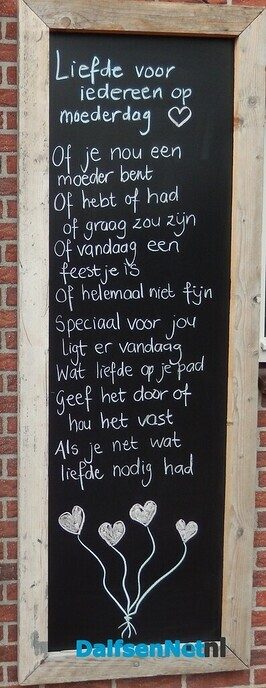 Liefde voor
iedereen op
moederdag ♡
Of je nou een
moeder bent
Of hebt of had
of graag zou zijn
Of vandaag een
feestje is
Of helemaal niet fijn
Speciaal voor jou
ligt er vandaag
Wat liefde op je pad
Geef het door of
hou het vast
Als je net wat
liefde nodig had
DalfsenNet.nl